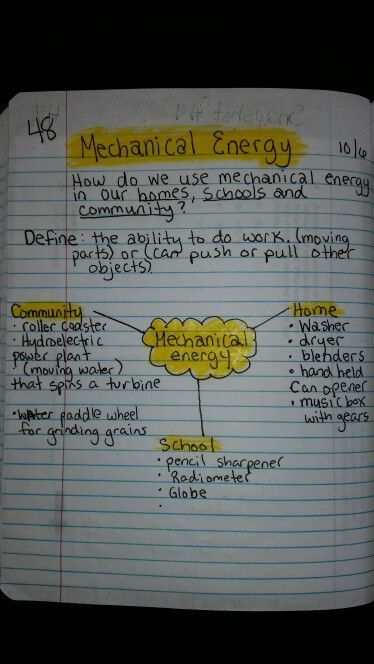 48
Mechanical Energy
10/6
How do we use mechanical energy
in our homes, schools and
community?
Define: the ability to do work. (moving
parts) or (can push or pull other
objects)
Community
• roller coaster
• Hydroelectric
power plant
(moving water)
that spins a turbine
• water paddle wheel
for grinding grains
Mechanical
energy
Home
• Washer
• dryer
• blenders
• hand held
can opener
• music box
with gears
School
• pencil sharpener
• Radiometer
• Globe
•